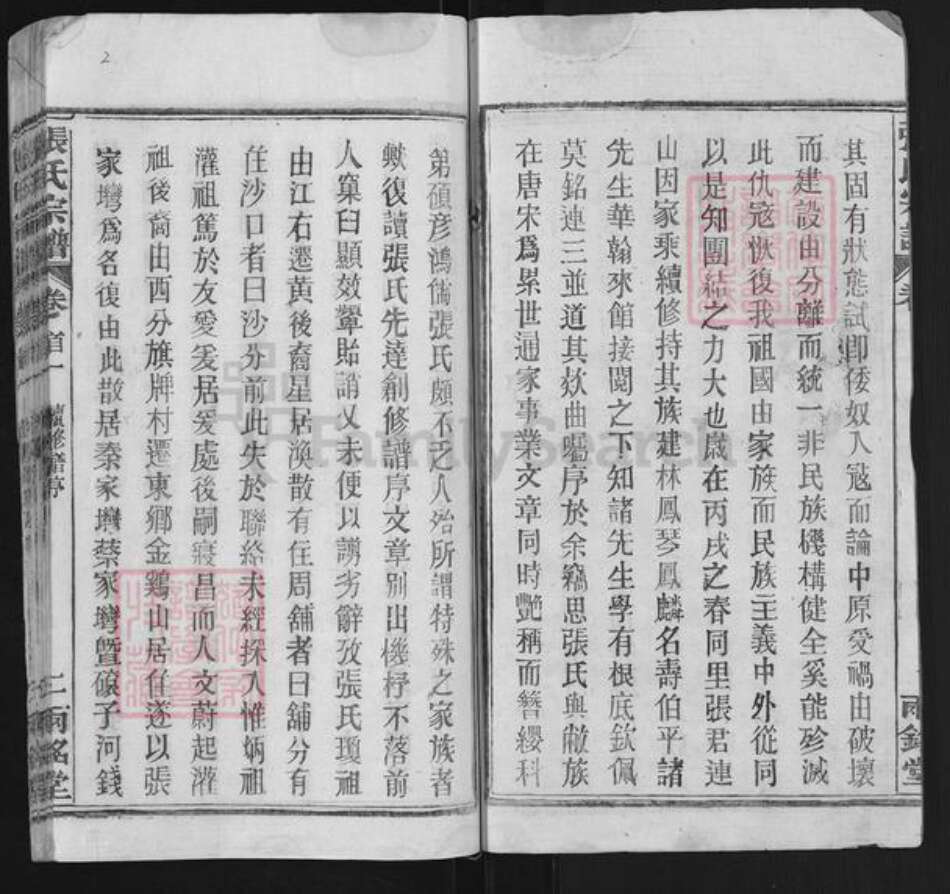 其固有狀態試卽倭奴入冦而論中原受禍由破壞
而建設由分離而統一非民族機構健全奚能殄滅
此仇冦恢復我祖國由家族而民族主義中外從同
以是知團結之力大也歲在丙戌之春同里張君連
山因家乘續修持其族建林鳳琴鳳麟名壽伯平諸
先生華翰來館接閱之下知諸先生學有根底欽佩
莫銘連三並道其欵曲囑序於余竊思張氏與敝族
在唐宋爲累世通家事業文章同時艷稱而簪纓科
第碩彥鴻儒張氏頗不乏人殆所謂特殊之家族者
歟復讀張氏先達創修譜序文章別出機杼不落前
人窠臼顯效顰貽誚又未便以謭劣辭攷張氏瓊祖
由江右遷黃後裔星居渙散有住周舖者曰舖分有
住沙口者曰沙分前此失於聯絡未經探入惟炳祖
灌祖篤於友愛爰居爰處後嗣寖昌而人文蔚起灌
祖後裔由西分旗牌村遷東鄉金鷄山居住遂以張
家塆爲名復由此散居秦家塆蔡家塆曁磙子河錢
張氏宗譜
卷首一
續修譜序
二
兩銘堂
2
FamilySearch